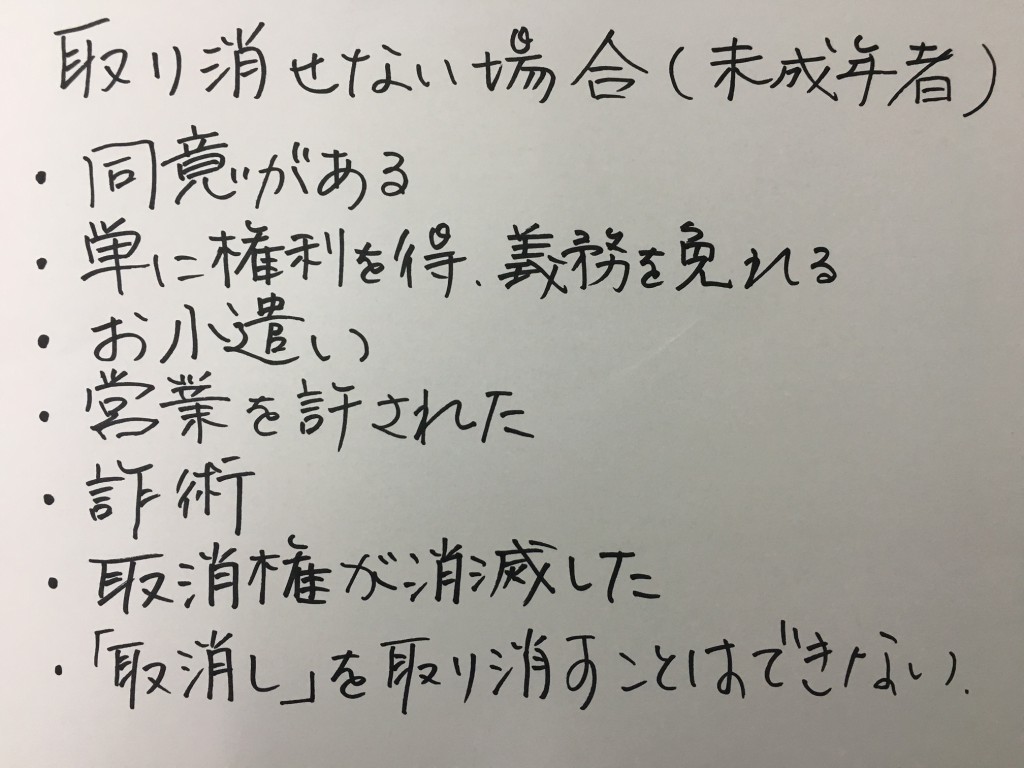 取り消せない場合(未成年者)
・同意がある
・単に権利を得、義務を免れる
・お小遣い
・営業を許された
・詐術
・取消権が消滅した
・「取消し」を取り消すことはできない.